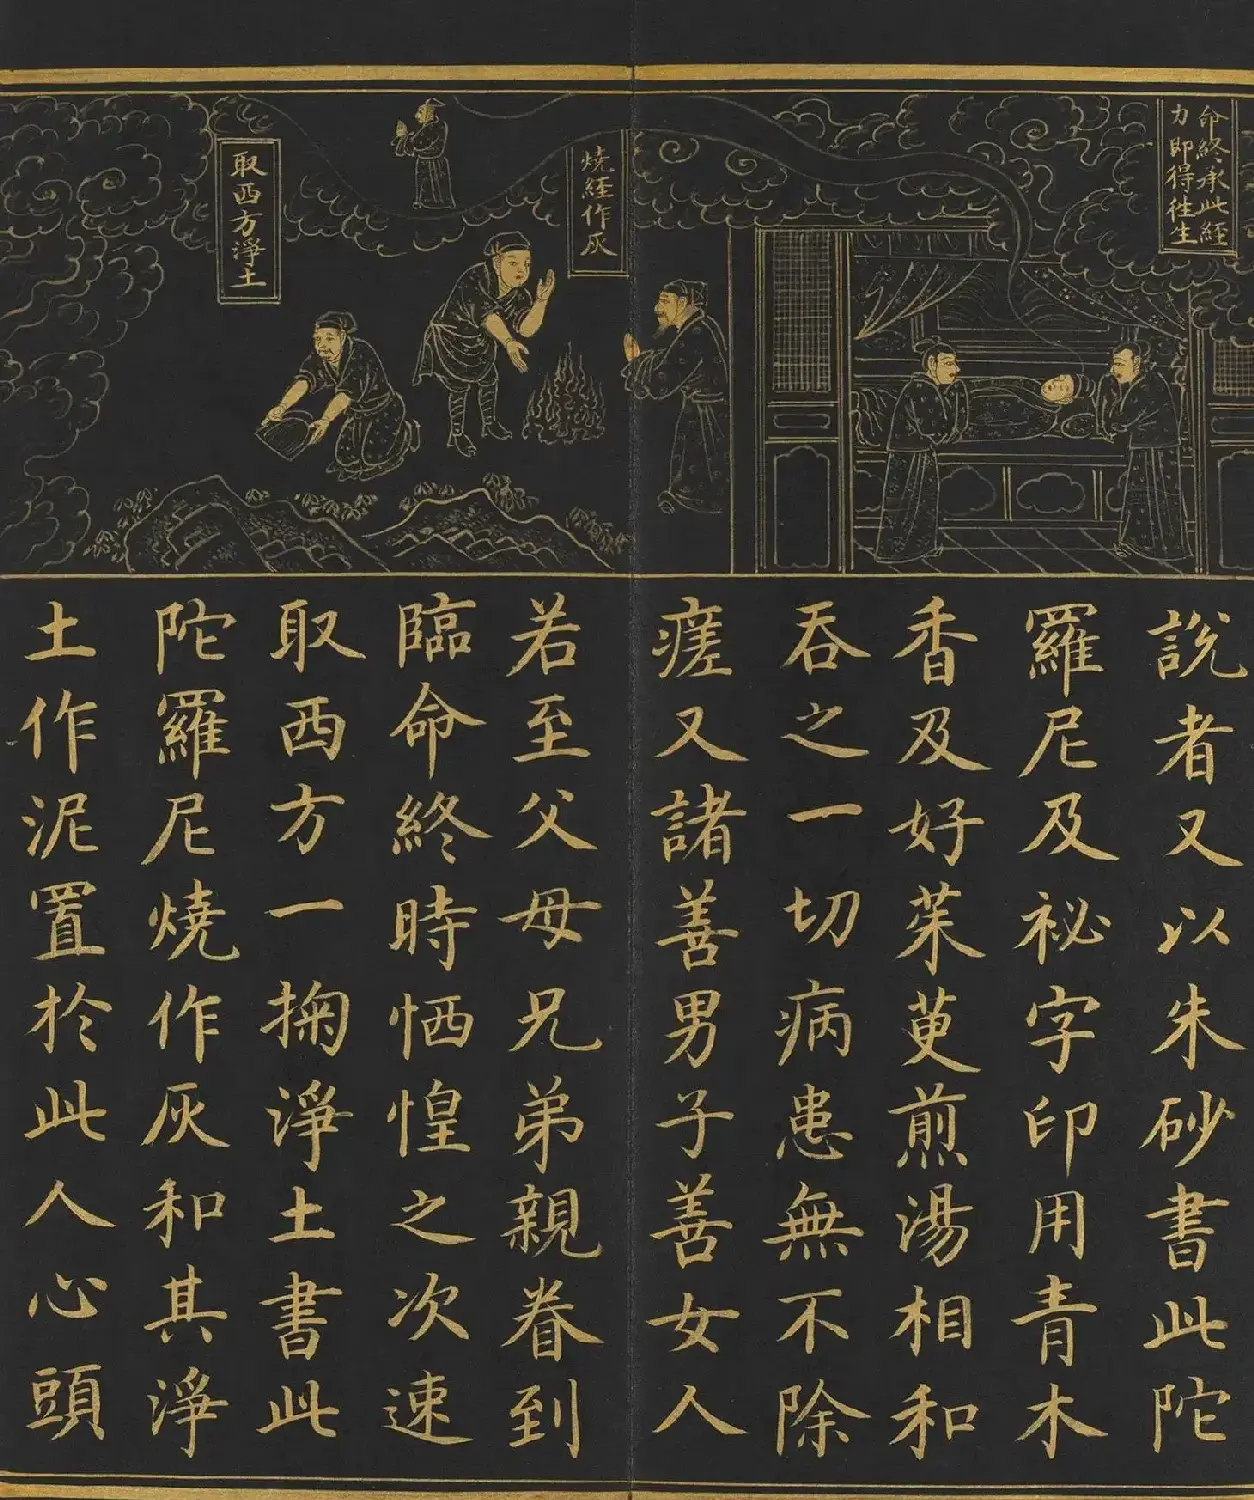 命終承此經
力即得徃生
燒経作灰
取西方淨土
說者又以朱砂書此陀
羅尼及祕字印用青木
香及好茱萸煎湯相和
吞之一切病患無不除
瘥又諸善男子善女人
若至父母兄弟親眷到
臨命終時恓惶之次速
取西方一掬淨土書此
陀羅尼燒作灰和其淨
土作泥置於此人心頭